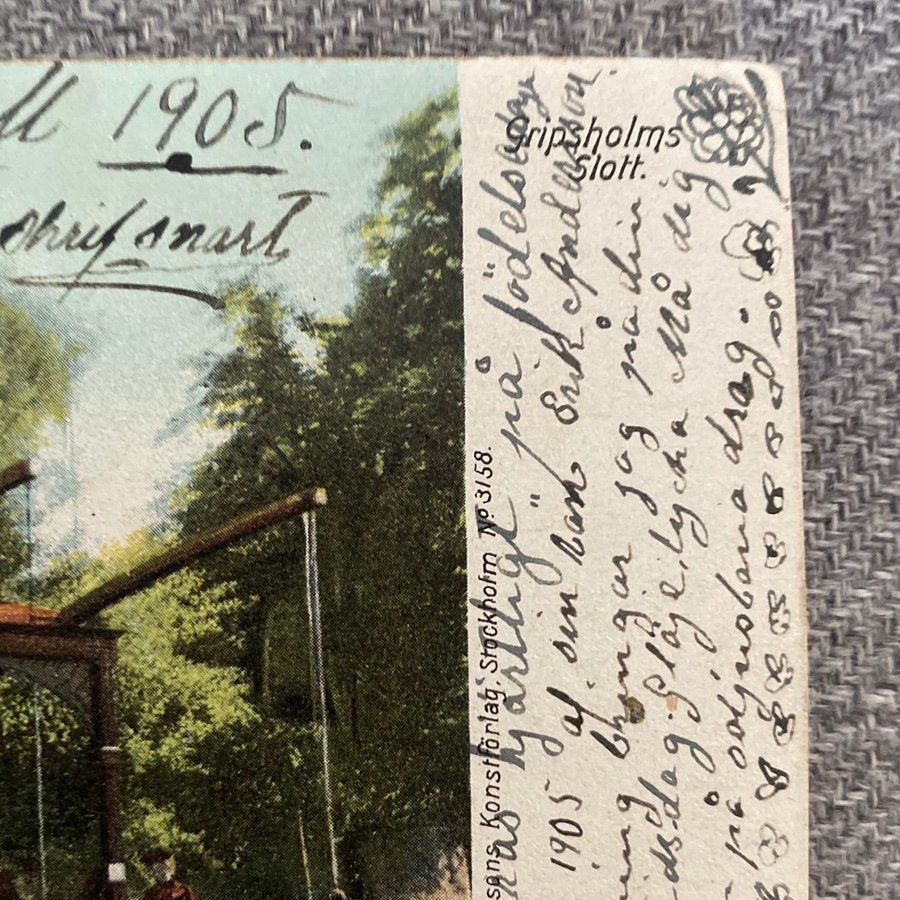 1905.
skrif snart
Gripsholms
Slott.
sons Konstförlag. Stockholm Nº 3158.
hjärtligt" på födelsedag
1905 af sin vän Erik Andersson.
bringar jag på din
Glädje, lycka Må dig
på solljusbana drag.